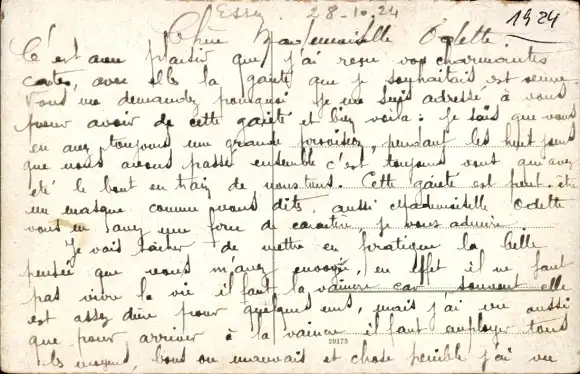 Essey. 28-10-24
1924
Chère Mademoiselle Odette
C'est avec plaisir que j'ai reçu vos charmantes
cartes, avec elles la gaieté que je souhaitais est venue.
Vous me demandez pourquoi je me suis adressé à vous
pour avoir de cette gaieté et bien voilà : Je sais que vous
en avez toujours une grande provision, pendant les huit jours
que nous avons passé ensemble c'est toujours vous qui avez
été le bout en train de nous tous. Cette gaieté est peut-être
un masque comme vous dites, aussi Mademoiselle Odette
vous en avez une force de caractère, je vous admire
Je vais tâcher de mettre en pratique la belle
pensée que vous m'avez envoyé, en effet il ne faut
pas vivre la vie il faut la vaincre car souvent elle
est assez dure pour quelques uns, mais j'ai vu aussi
que pour arriver à la vaincre il faut employer tous
les moyens, bons ou mauvais et chose pénible j'ai vu
29175